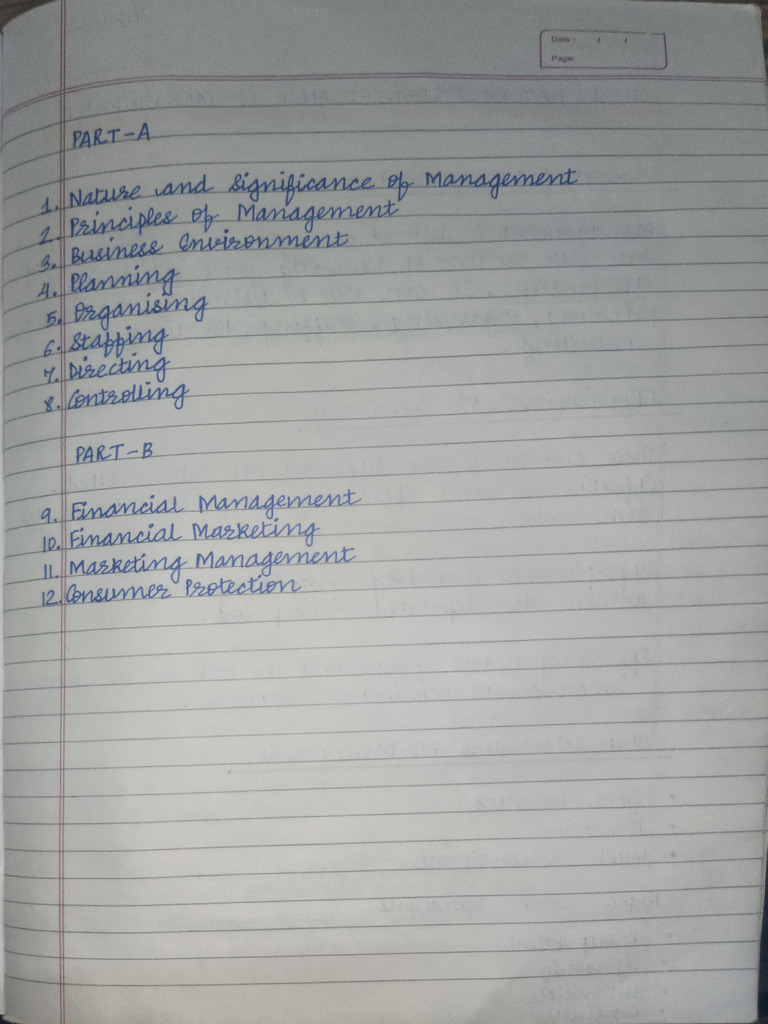 Date : / /
Page:
PART-A
1. Nature and Significance of Management
2. Principles of Management
3. Business Environment
4. Planning
5. Organising
6. Staffing
7. Directing
8. Controlling
PART-B
9. Financial Management
10. Financial Marketing
11. Marketing Management
12. Consumer Protection